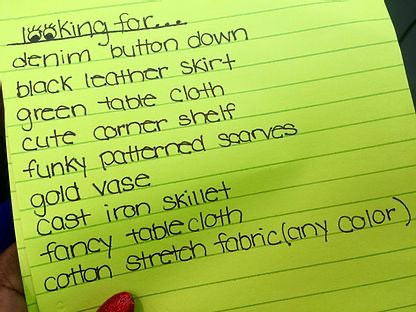 looking for...
denim button down
black leather skirt
green table cloth
cute corner shelf
funky patterned scarves
gold vase
cast iron skillet
fancy tablecloth
cotton stretch fabric(any color)